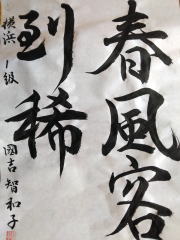 春風客
到稀
横浜 1級 國吉智和子